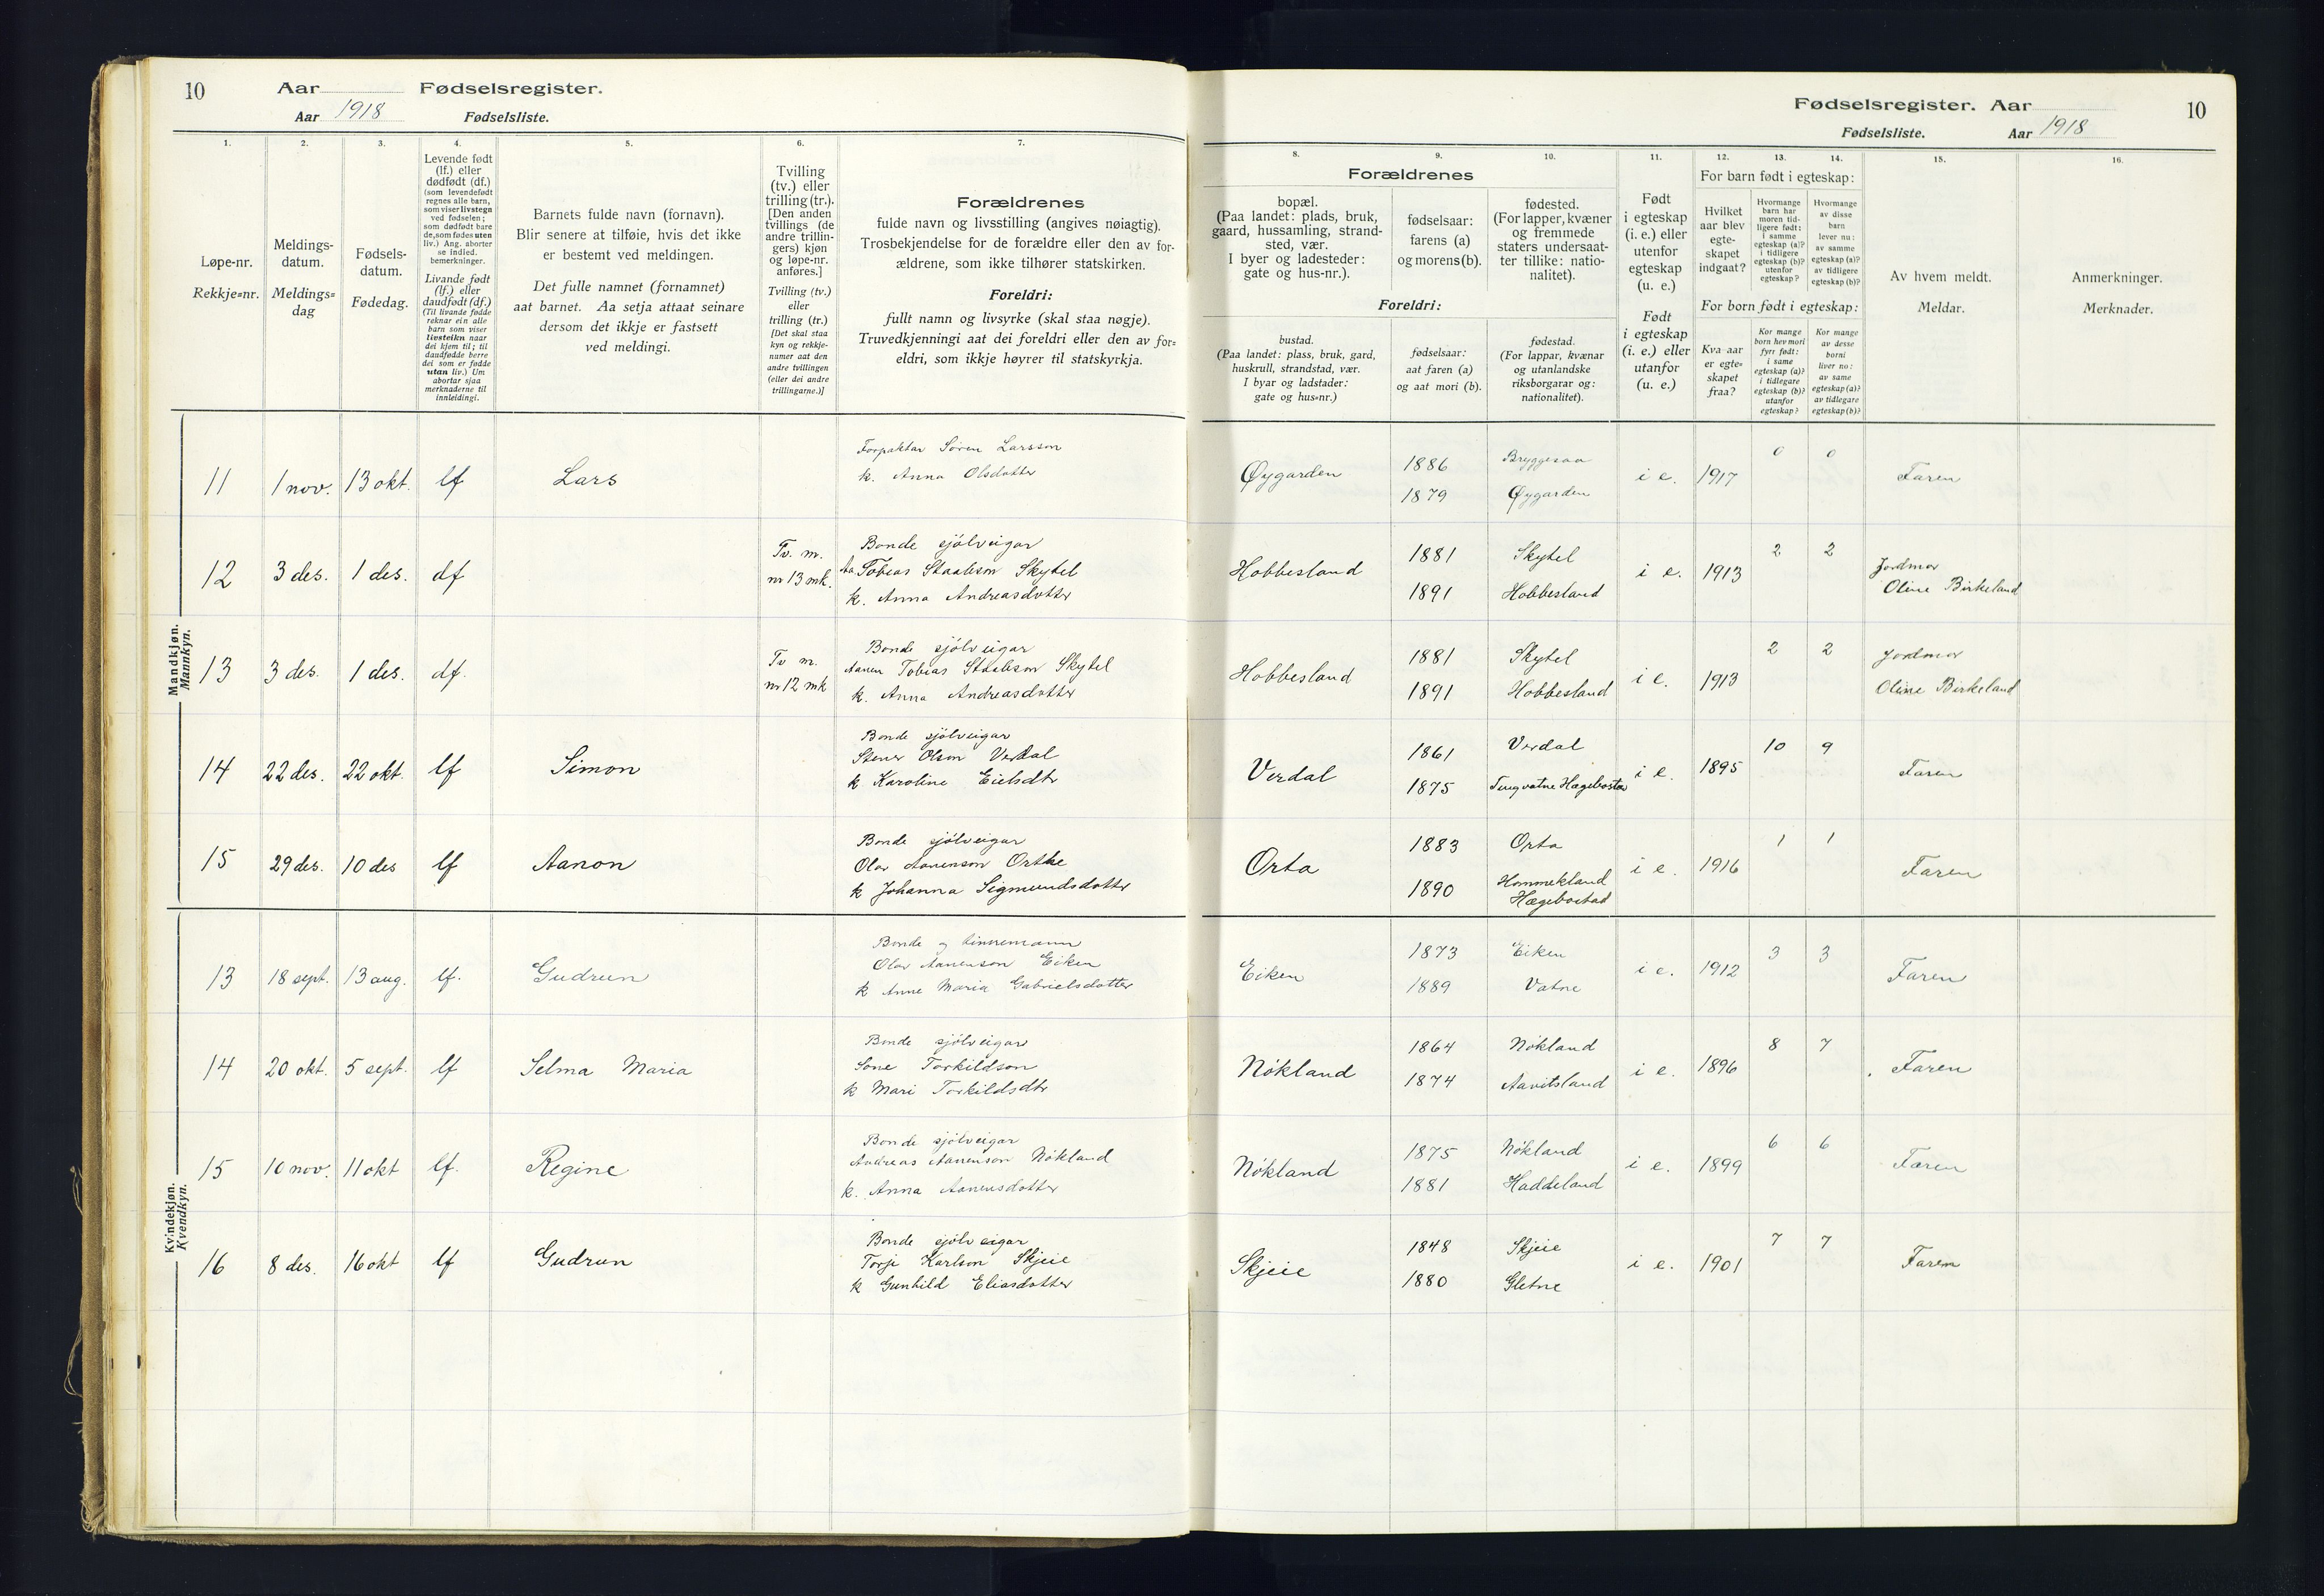 10
Aar
Fødselsregister.
Aar 1918
Fødselsliste.
1.
2.
3.
4.
5.
6.
7.
Løpe-nr.
Rekkje=nr.
Meldings-
datum.
Meldings=
dag
Fødsels-
datum.
Fødedag.
Levende født
(lf.) eller
dødfødt (df.)
(som levendefødt
regnes alle barn,
som viser livstegn
ved fødselen;
som dødfødt bare
de, som fødes uten
liv.) Ang. aborter
se indled.
bemerkninger.
Livande født
(lf.) eller
daudfødt (df.)
(Til livande fødde
reknar ein alle
barn som viser
livsteikn naar
dei kjem til; til
daudfødde berre
dei som er fødde
utan liv.) Um
abortar sjaa
merknaderne til
innleidingi.
Barnets fulde navn (fornavn).
Blir senere at tilføie, hvis det ikke
er bestemt ved meldingen.
Det fulle namnet (fornamnet)
aat barnet. Aa setja attaat seinare
dersom det ikkje er fastsett
ved meldingi.
Tvilling
(tv.) eller
trilling (tr.).
[Den anden
tvillings (de
andre trillin-
gers) kjøn
og løpe-nr.
anføres.]
Tvilling (tv.)
eller
trilling (tr.)
[Det skal staa
kyn og rekkje-
numer aat den
andre tvillingen
(eller dei andre
trillingarne.)]
Forældrenes
fulde navn og livsstilling (angives nøiagtig).
Trosbekjendelse for de forældre eller den av for-
ældrene, som ikke tilhører statskirken.
Foreldri:
fullt namn og livsyrke (skal staa nøgje).
Truvedkjenningi aat dei foreldri eller den av for=
eldri, som ikkje høyrer til statskyrkja.
Mandkjøn.
Mannkyn.
11 1 nov. 13 okt. lf Lars
Forpaktar Søren Larsson
k. Anna Olsdotter
12 3 des. 1 des. df
Tv. m.
nr 13 mk.
Bonde sjölveigar
Aa. Tobias Staalesen Skytel
k. Anna Andreasdotter
13 3 des. 1 des. df.
Tv m.
nr 12 mk
Bonde sjölveigar
Aanen Tobias Staalesen Skytel
k. Anna Andreasdotter
14 22 des. 22 okt. lf Simon
Bonde sjölveigar
Olson Verdal
k Karoline Eielsdtr
15 29 des. 10 des lf Aanon
Bonde sjölveigar
Olav Aanenson Ortke
k Johanna Sigmundsdotter
Kvindekjøn.
Kvendkyn.
13 18 sept. 13 aug. lf. Gudrun
Bonde og
Olav Aanenson Eiken
k Anne Maria Gabrielsdotter
14 20 okt. 5 sept. lf Selma Maria
Bonde sjölveigar
Torkildson
k Mari Torkildsdtr
15 10 nov. 11 okt lf. Regine
Bonde sjölveigar
Andreas Aanenson Nökland
k. Anna Aanensdotter
16 8 des. 16 okt lf Gudrun
Bonde sjölveigar
Torje Karlson Skjeie
k Gunhild Eliasdotter
Fødselsregister. Aar
10
Fødselsliste.
Aar 1918
8.
9.
10.
11.
12.
13.
14.
15.
16.
Forældrenes
bopæl.
(Paa landet: plads, bruk,
gaard, hussamling, strand-
sted, vær.
I byer og ladesteder:
gate og hus-nr.).
fødselsaar:
farens (a)
og morens (b).
fødested.
(For lapper, kvæner
og fremmede
staters undersaat-
ter tillike: natio-
nalitet).
Foreldri:
bustad.
(Paa landet: plass, bruk, gard,
huskrull, strandstad, vær.
I byar og ladstader:
gate og hus=nr.)
fødselsaar:
aat faren (a)
og aat mori (b).
fødestad.
(For lappar, kvænar
og utanlandske
riksborgarar og:
nationalitet).
Født
i egteskap
(i. e.) eller
utenfor
egteskap
(u. e.)
Født
i egteskap
(i. e.) eller
utanfor
(u. e.)
For barn født i egteskap:
Hvilket
aar blev
egte-
skapet
indgaat?
Hvormange
barn har
moren tid-
ligere født:
i samme
egteskap (a)?
i tidligere
egteskap (b)?
utenfor
egteskap?
Hvormange
av disse
barn
lever nu:
av samme
egteskap (a)?
av tidligere
egteskap (b)?
For born født i egteskap:
Kva aar
er egte=
skapet
fraa?
Kor mange
born hev mori
fyrr født:
i same
egteskap (a)?
i tidlegare
egteskap (b)?
utanfor
egteskap?
Kor mange
av desse
borni
liver no:
av same
egteskap (a)?
av tidlegare
egteskap (b)?
Av hvem meldt.
Meldar.
Anmerkninger.
Merknader.
Øygarden 1886 Bryggesaa i e. 1917 0 0 Faren
1879 Øygarden
Hobbesland 1881 Skytel i e. 1913 2 2 Jordmor
1891 Hobbesland Oline Birkeland
Hobbesland 1881 Skytel i e. 1913 2 2 Jordmor
1891 Hobbesland Oline Birkeland
Verdal 1861 Verdal i e. 1895 10 9 Faren
1875 Hægebostad
Orta 1883 Orta i e. 1916 1 1 Faren
1890 Hommekland
Hægebostad
Eiken 1873 Eiken i e. 1912 3 3 Faren
1889 Vatne
Nökland 1864 Nökland i e. 1896 8 7 Faren
1874 Aavitsland
Nökland 1875 Nökland i e. 1899 6 6 Faren
1881 Haddeland
Skjeie 1848 Skjeie i e. 1901 7 7 Faren
1880 Gletne